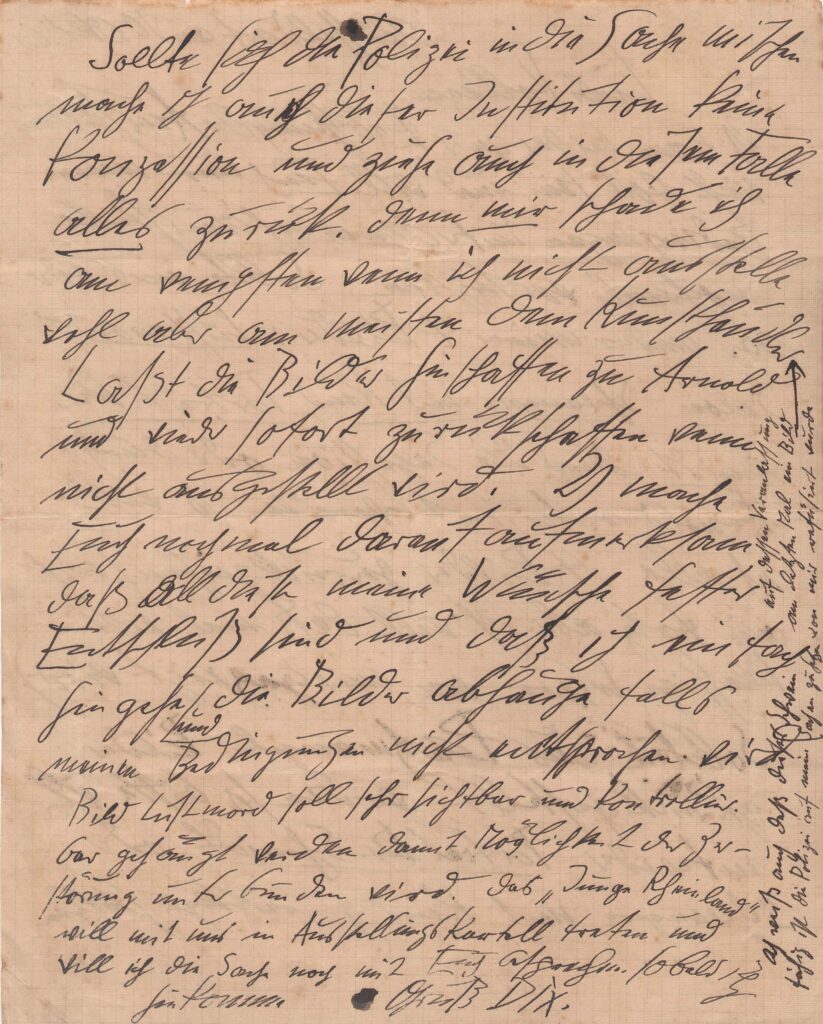 Sollte sich die Polizei in die Sache mischen
mache ich auch dieser Institution keine
Konzession und ziehe auch in diesem Falle
alles zurück. denn mir schade ich
am wenigsten wenn ich nicht ausstelle
wohl aber am meisten dem Kunsthändler
Laßt die Bilder hinschaffen zu Arnold
und wieder sofort zurückschaffen wenn
nicht ausgestellt wird. Ich mache
Euch nochmal darauf aufmerksam
daß all diese meine Wünsche fester
Entschluß sind und daß ich einfach
hingehe, die Bilder abhänge falls
meinen und Bedingungen nicht entsprochen wird
Bild Lustmord soll sehr sichtbar und Kontrollier-
bar gehängt werden damit Möglichkeit der Zer-
störung unterbunden wird. Das „Junge Rheinland"
will mit uns in Ausstellungskartell treten und
will ich die Sache noch mit Euch absprechen. sobald ich
hinkomme Gruß Dix.
auf dessen Veranlassung
am letzten Mal ein Bild
von mir
Ich weiß auch daß dieses Schwein
fähig ist die Polizei auf meine Sachen zu hetzen
wurde